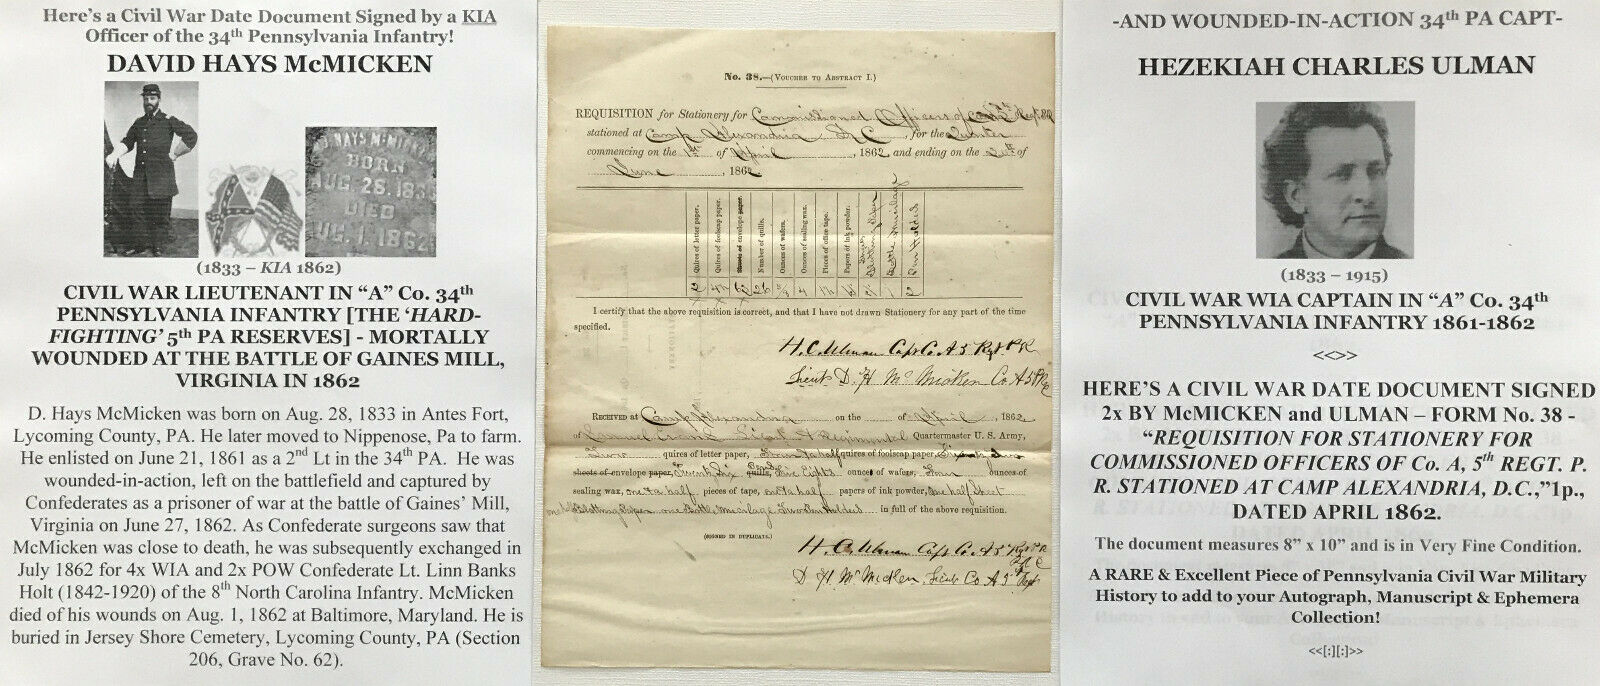 Here's a Civil War Date Document Signed by a KIA
Officer of the 34th Pennsylvania Infantry!
DAVID HAYS McMICKEN
HAYS McMICKEN
BORN
AUG. 28, 183
DIED
AUG. 1, 1862
(1833 – KIA 1862)
CIVIL WAR LIEUTENANT IN "A" Co. 34th
PENNSYLVANIA INFANTRY [THE 'HARD-
FIGHTING' 5th PA RESERVES] - MORTALLY
WOUNDED AT THE BATTLE OF GAINES MILL,
VIRGINIA IN 1862
D. Hays McMicken was born on Aug. 28, 1833 in Antes Fort,
Lycoming County, PA. He later moved to Nippenose, Pa to farm.
He enlisted on June 21, 1861 as a 2nd Lt in the 34th PA. He was
wounded-in-action, left on the battlefield and captured by
Confederates as a prisoner of war at the battle of Gaines' Mill,
Virginia on June 27, 1862. As Confederate surgeons saw that
McMicken was close to death, he was subsequently exchanged in
July 1862 for 4x WIA and 2x POW Confederate Lt. Linn Banks
Holt (1842-1920) of the 8th North Carolina Infantry. McMicken
died of his wounds on Aug. 1, 1862 at Baltimore, Maryland. He is
buried in Jersey Shore Cemetery, Lycoming County, PA (Section
206, Grave No. 62).
No. 38.—(Voucher to Abstract I.)
REQUISITION for Stationery for Commissioned Officers of Co A 5th Regt PR
stationed at Camp Alexandria D C, for the Quarter
commencing on the 1st of April, 1862, and ending on the 30th of
June, 1862
Quires of letter paper.
Quires of foolscap paper.
envelope paper.
Number of quills.
Ounces of wafers.
Ounces of sealing wax.
Pieces of office tape.
Papers of ink powder.
Blotting Paper
Bottle Mucilage
Pen Holders
2 4½ 26 5/8 4 1½ 1½ ½ 1 2
I certify that the above requisition is correct, and that I have not drawn Stationery for any part of the time
specified.
H. C. Ulman Capt Co. A 5 Regt P R
Lieut D. H McMicken Co A 5 P R
Received at Camp Alexandria on the of April, 1862
of Samuel Evans 5 Regimental Quartermaster U. S. Army,
Two quires of letter paper, Four & half quires of foolscap paper,
sheets of envelope paper, Twenty Six quills, Five Eights ounces of wafers, Four ounces of
sealing wax, one & a half pieces of tape, one & a half papers of ink powder, one half Sheet
Blotting Paper one Bottle Mucilage Two Pen Holders in full of the above requisition.
(SIGNED IN DUPLICATE.)
H. C. Ulman Capt Co. A 5 Regt P R
D H McMicken, Lieut Co A 5 Regt
-AND WOUNDED-IN-ACTION 34th PA CAPT-
HEZEKIAH CHARLES ULMAN
(1833 – 1915)
CIVIL WAR WIA CAPTAIN IN "A" Co. 34th
PENNSYLVANIA INFANTRY 1861-1862
<<>>
HERE'S A CIVIL WAR DATE DOCUMENT SIGNED
2x BY McMICKEN and ULMAN – FORM No. 38 -
"REQUISITION FOR STATIONERY FOR
COMMISSIONED OFFICERS OF Co. A, 5th REGT. P.
R. STATIONED AT CAMP ALEXANDRIA, D.C.,"1p.,
DATED APRIL 1862.
The document measures 8" x 10" and is in Very Fine Condition.
A RARE & Excellent Piece of Pennsylvania Civil War Military
History to add to your Autograph, Manuscript & Ephemera
Collection!
<<[:][:]>>